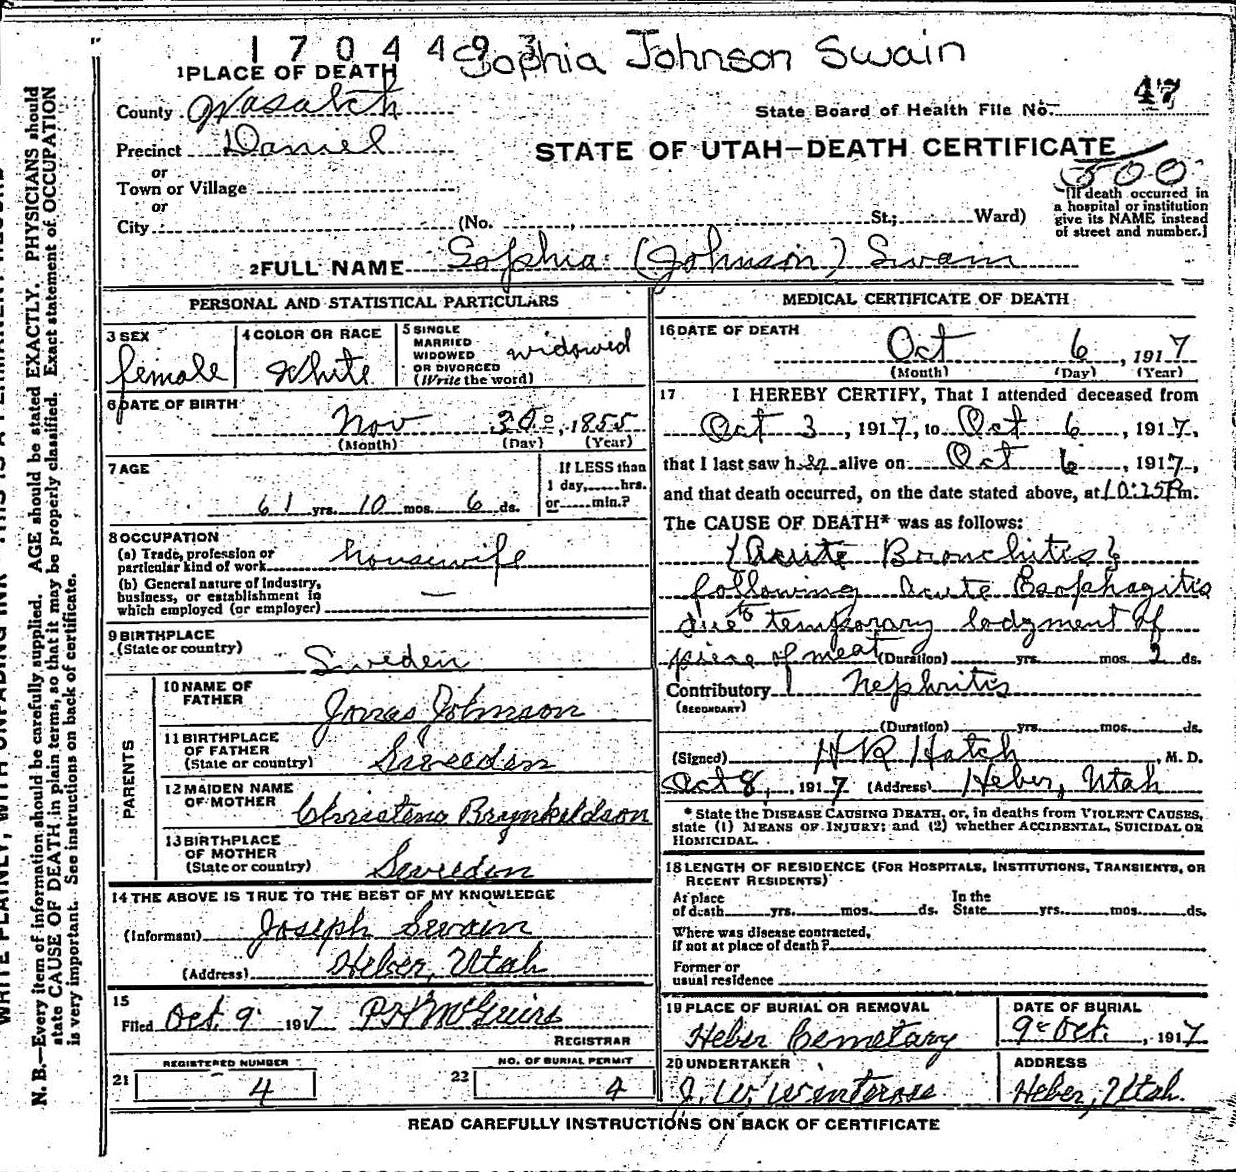 1704493
Sophia Johnson Swain
1 PLACE OF DEATH
County Wasatch
State Board of Health File No. 47
Precinct Daniel
STATE OF UTAH—DEATH CERTIFICATE
500
or
Town or Village
or
City (No. , St.; Ward)
[If death occurred in
a hospital or institution
give its NAME instead
of street and number.]
2 FULL NAME Sophia (Johnson) Swain
PERSONAL AND STATISTICAL PARTICULARS
3 SEX
female
4 COLOR OR RACE
White
5 SINGLE
MARRIED
WIDOWED
OR DIVORCED
(Write the word)
widowed
6 DATE OF BIRTH
Nov 30, 1855
(Month) (Day) (Year)
7 AGE
61 yrs. 10 mos. 6 ds.
If LESS than
1 day, hrs.
or min.?
8 OCCUPATION
(a) Trade, profession or
particular kind of work housewife
(b) General nature of Industry,
business, or establishment in
which employed (or employer) —
9 BIRTHPLACE
(State or country) Sweden
PARENTS
10 NAME OF
FATHER Jonas Johnson
11 BIRTHPLACE
OF FATHER
(State or country) Sweeden
12 MAIDEN NAME
OF MOTHER Christena Brynkeldson
13 BIRTHPLACE
OF MOTHER
(State or country) Sweeden
14 THE ABOVE IS TRUE TO THE BEST OF MY KNOWLEDGE
(Informant) Joseph Swain
(Address) Heber, Utah
15
Filed Oct. 9 1917 P H McGuire
REGISTRAR
REGISTERED NUMBER
21 4
NO. OF BURIAL PERMIT
22 4
MEDICAL CERTIFICATE OF DEATH
16 DATE OF DEATH
Oct 6, 1917
(Month) (Day) (Year)
17 I HEREBY CERTIFY, That I attended deceased from
Oct 3, 1917, to Oct 6, 1917,
that I last saw her alive on Oct 6, 1917,
and that death occurred, on the date stated above, at 10:15 P m.
The CAUSE OF DEATH* was as follows:
(Acute Bronchitis)
following Acute Esophagitis
due to temporary lodgment of
piece of meat (Duration) yrs. mos. 2 ds.
Contributory Nephritis
(SECONDARY)
(Duration) yrs. mos. ds.
(Signed) H R Hatch, M. D.
Oct 8, 1917 (Address) Heber, Utah
* State the DISEASE CAUSING DEATH, or, in deaths from VIOLENT CAUSES,
state (1) MEANS OF INJURY; and (2) whether ACCIDENTAL, SUICIDAL OR
HOMICIDAL.
18 LENGTH OF RESIDENCE (FOR HOSPITALS, INSTITUTIONS, TRANSIENTS, OR
RECENT RESIDENTS)
At place
of death yrs. mos. ds.
In the
State yrs. mos. ds.
Where was disease contracted,
if not at place of death?
Former or
usual residence
19 PLACE OF BURIAL OR REMOVAL
Heber Cemetary
DATE OF BURIAL
9 Oct., 1917
20 UNDERTAKER
J. W. Winterose
ADDRESS
Heber, Utah.
READ CAREFULLY INSTRUCTIONS ON BACK OF CERTIFICATE
N. B.—Every item of information should be carefully supplied. AGE should be stated EXACTLY. PHYSICIANS should
state CAUSE OF DEATH in plain terms, so that it may be properly classified. Exact statement of OCCUPATION
is very important. See instructions on back of certificate.